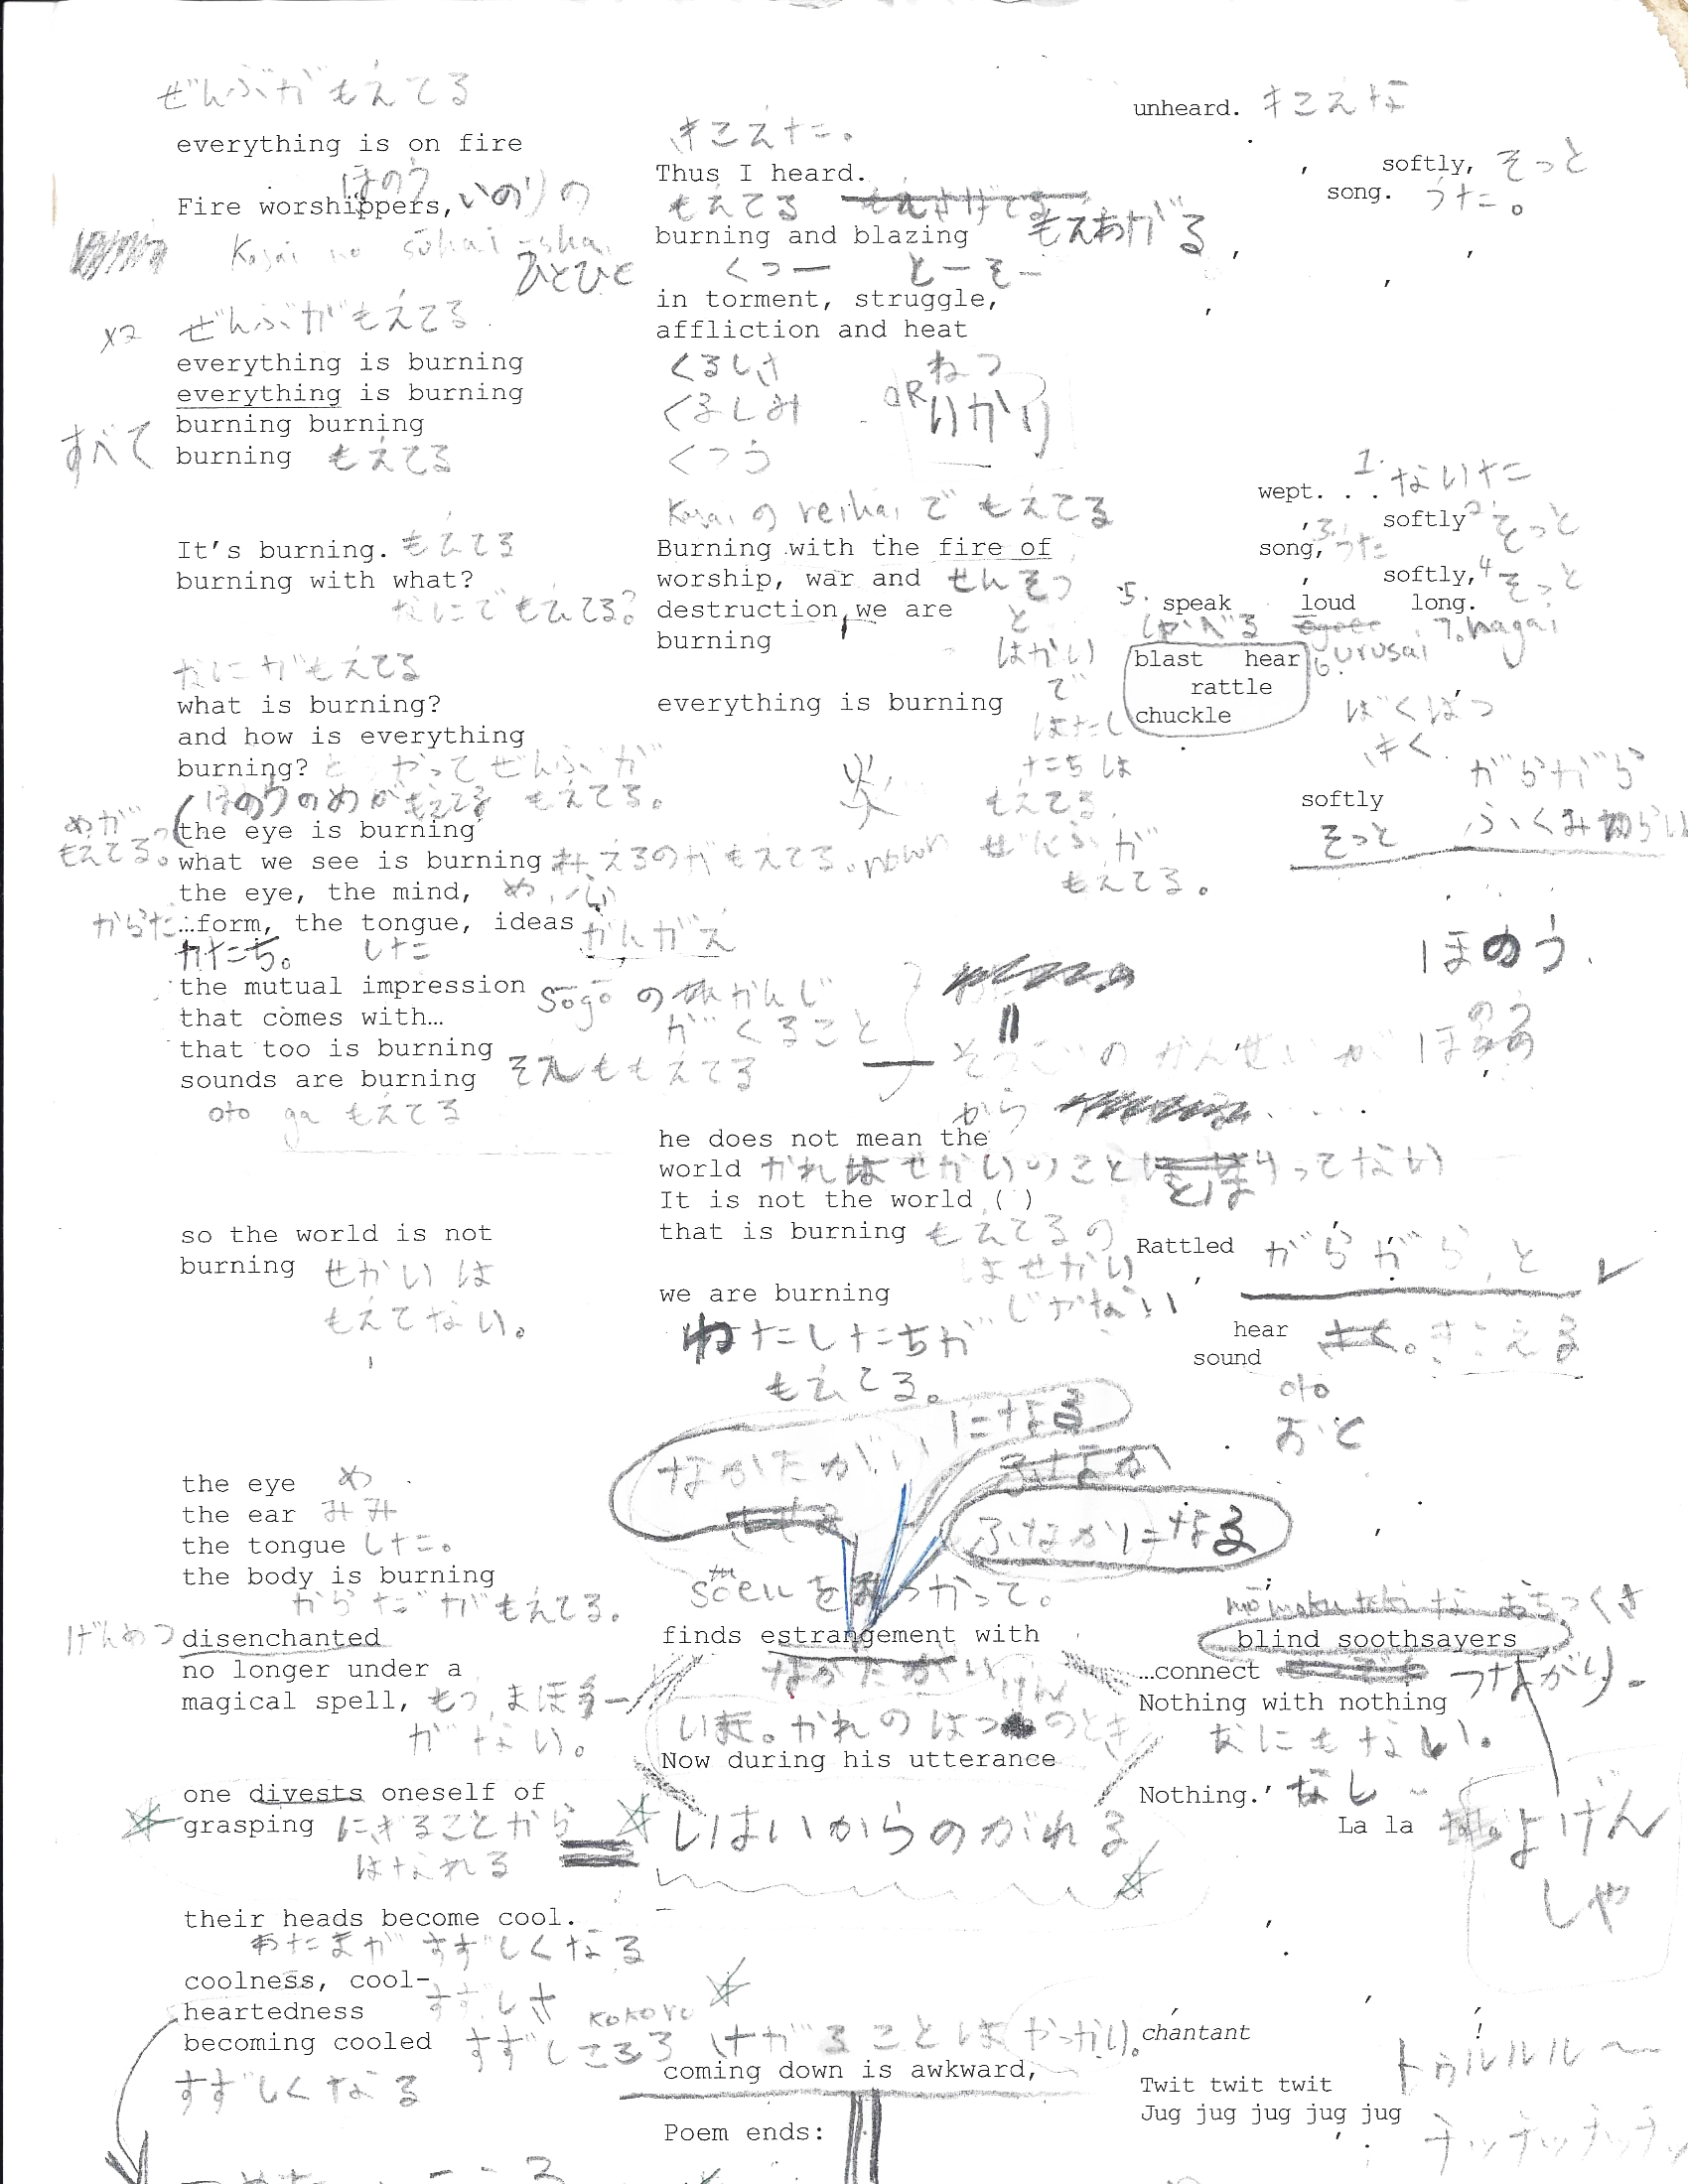 ぜんぶがもえてる
everything is on fire
ほのう
Fire worshippers, いのりの
Kasai no sūhai-sha
ひとひと
x2 ぜんぶがもえてる
everything is burning
everything is burning
burning burning
すべて burning もえてる
It's burning. もえてる
burning with what?
なにでもえてる?
なにがもえてる
what is burning?
and how is everything
burning? と やってぜんぶが
ほのうのめがもえてる もえてる。
めが
もえてる。
the eye is burning
what we see is burning みえるのがもえてる。
the eye, the mind, め,
からだ …form, the tongue, ideas かんがえ
かたち。 した
the mutual impression Sōgo の かんじ
that comes with… がくること
that too is burning
sounds are burning それももえてる
oto ga もえてる
so the world is not
burning せかいは
もえてない。
the eye め
the ear みみ
the tongue した。
the body is burning
からだがもえてる。
げんめつ disenchanted
no longer under a
magical spell, もう まほうー
がない。
one divests oneself of
grasping にぎることから
はなれる
their heads become cool.
あたまがすずしくなる
coolness, cool-
heartedness すずしさ
kokoro
becoming cooled すずしこころ
すずしくなる
きこえた。
Thus I heard.
もえてる もえあがる
burning and blazing
くつー とーそー
in torment, struggle,
affliction and heat
くるしさ ねつ
くるしみ OR いかり
くつう
Kasai の reihai で もえてる
Burning with the fire of
worship, war and せんそう
destruction, we are と
burning はかい
で
everything is burning
わたし
たちは
炎 もえてる
ぜんぶが
もえてる。
そうごのかんせいが ほのう
から
he does not mean the
world かれはせかいのこと ってない
It is not the world ( )
that is burning もえてるの
はせかい
じゃない
we are burning
わたしたちが
もえてる。
なかたがいになる
ふなかになる
soen をみつかって。
finds estrangement with
なかたがい
いま。かれのはつげんのとき
Now during his utterance
しはいからのがれる
さがることはやっかい。
coming down is awkward,
Poem ends:
unheard. きこえな
, softly, そっと
song. うた。
1. ないた
wept. . .
, softly 2 そっと
song, 3. うた
, softly, 4 そっと
5. speak loud long.
しゃべる 7. nagai
6. urusai
blast hear
rattle
chuckle
ばくはつ
きく
がらがら
softly
そっと ふくみわらい
ほのう
Rattled がらがら と
hear きこえる
sound
oto
おと
blind soothsayers
…connect つながり
Nothing with nothing
なにもない。
Nothing. なし
La la
よげん
しゃ
chantant
!
トゥルルル〜
Twit twit twit
Jug jug jug jug jug
チッチッチッチッ